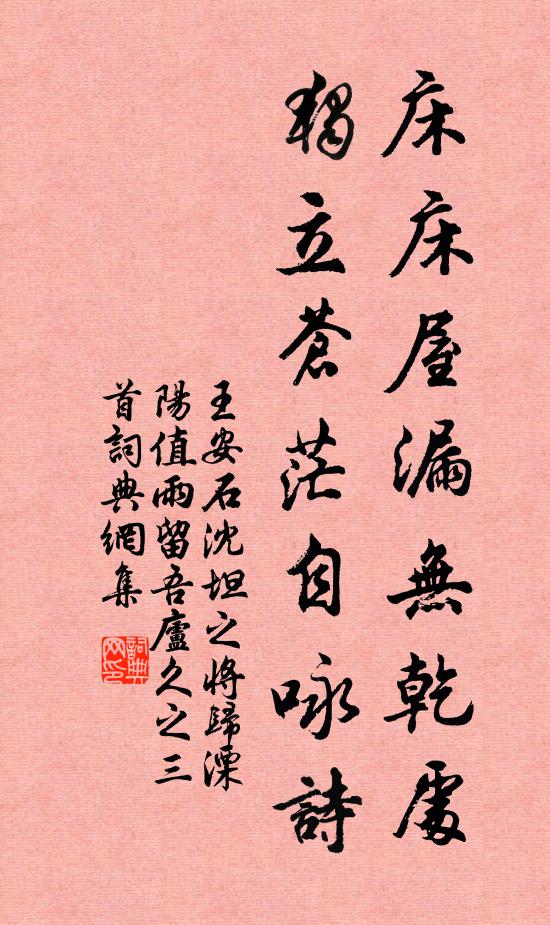 床床屋漏無乾處
獨立蒼茫自咏詩
王安石沈坦之將歸溧
陽值雨留吾廬久之三
首詞典網集
詞典
网印